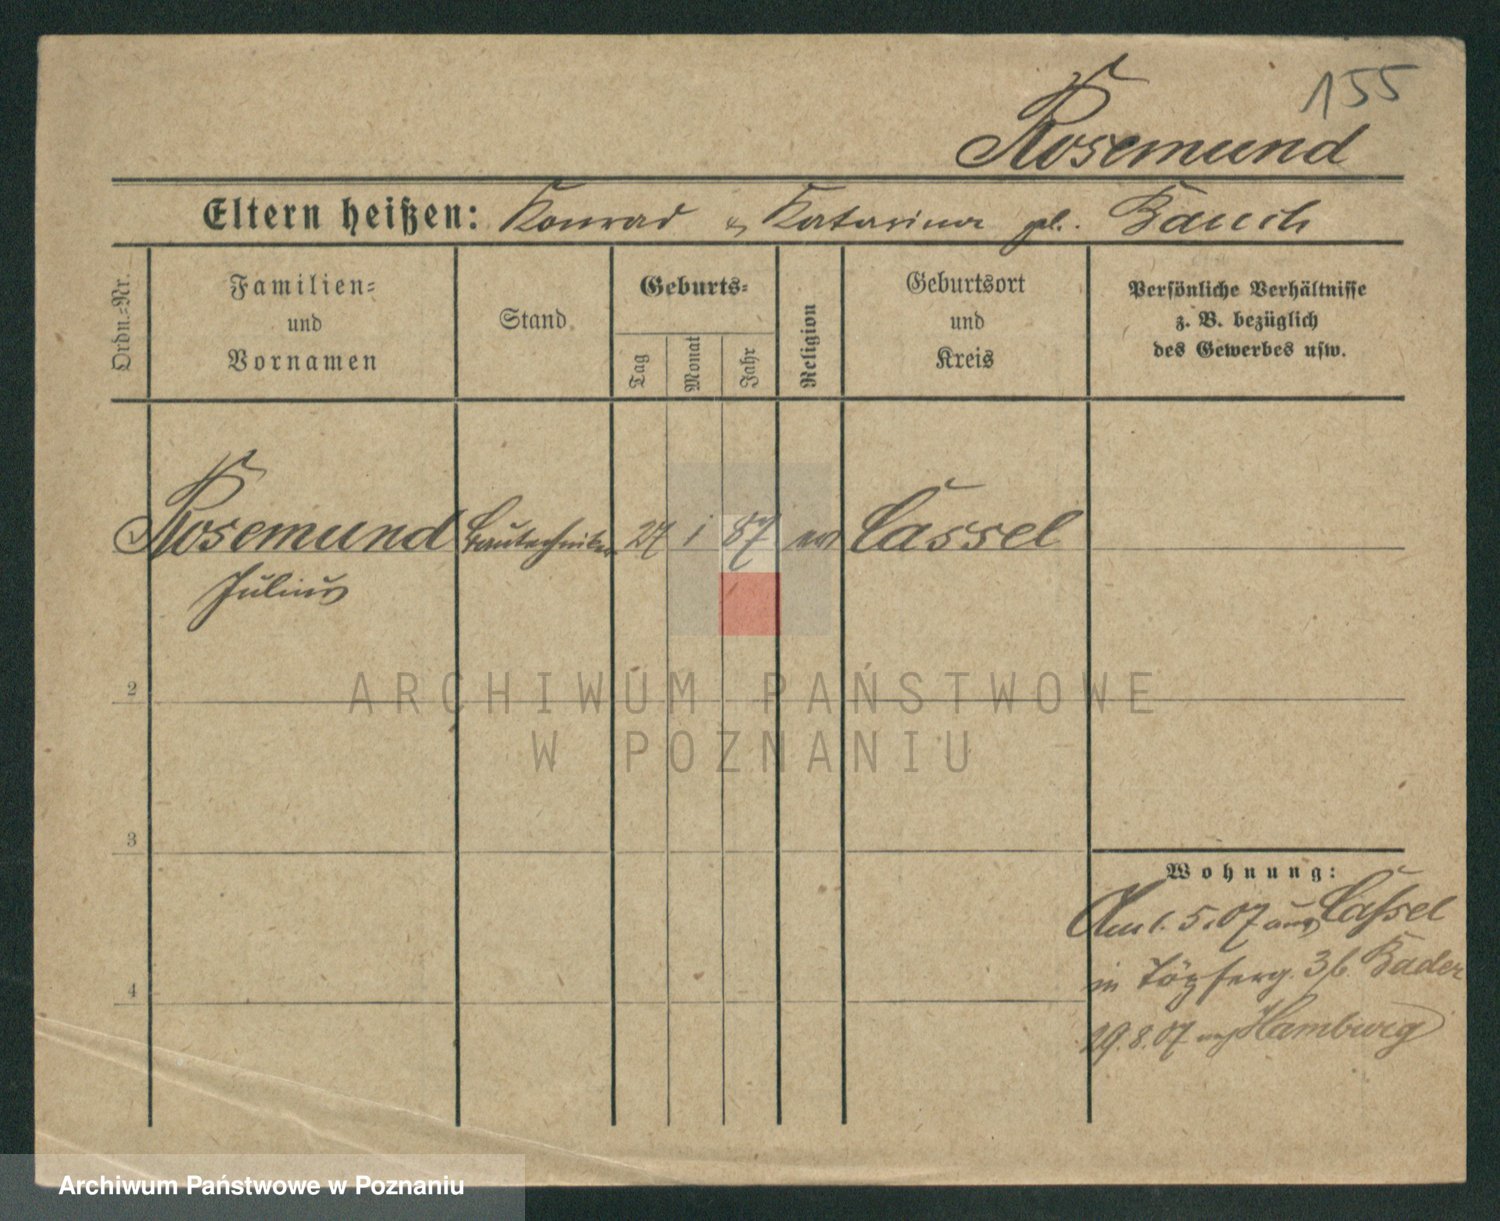 155
Rosemund
Eltern heißen: Konrad u. Katarina gb. Bauch
Ordn.-Nr.
Familien-
und
Vornamen
Stand
Geburts-
Tag
Monat
Jahr
Religion
Geburtsort
und
Kreis
Persönliche Verhältnisse
z. B. bezüglich
des Gewerbes usw.
Rosemund Bautechniker 27 1 87 ev Cassel
Julius
2
3
4
Wohnung:
Am 1.5.07 aus Cassel
in Töpferg. 3 b. Bader
29.8.07 nach Hamburg
ARCHIWUM PAŃSTWOWE
W POZNANIU
Archiwum Państwowe w Poznaniu